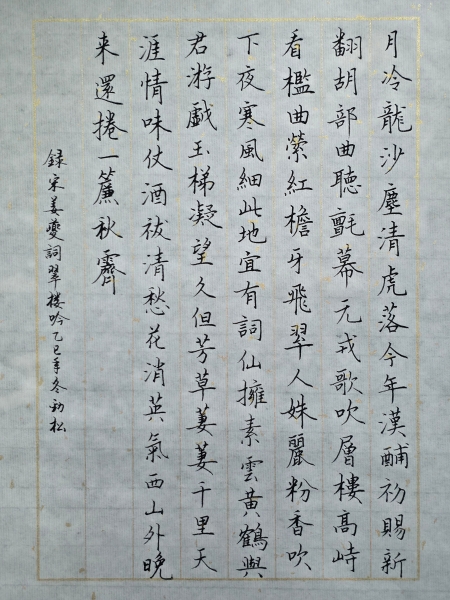 月冷龍沙塵清虎落今年漢酺初賜新
翻胡部曲聽氈幕元戎歌吹層樓高峙
看檻曲縈紅檐牙飛翠人姝麗粉香吹
下夜寒風細此地宜有詞仙擁素雲黃鶴與
君游戲玉梯凝望久但芳草萋萋千里天
涯情味仗酒祓清愁花消英氣西山外晚
来還捲一簾秋霽
録宋姜夔詞翠樓吟乙巳年冬初松